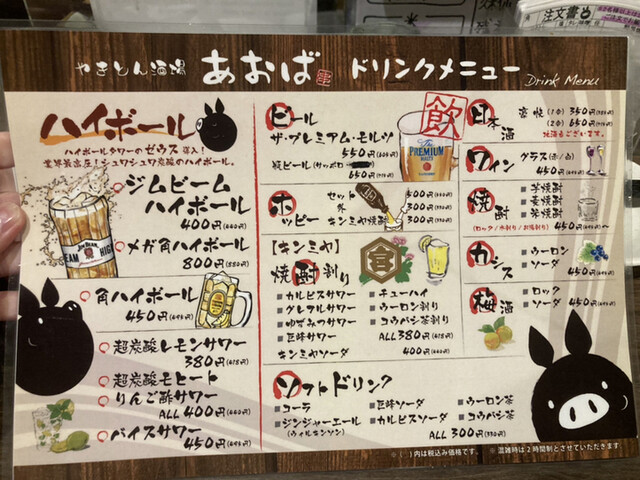 注文書
やきとん酒場 あおば ドリンクメニュー
Drink Menu
ハイボール
ハイボールタワーのゼウス導入！
業界最高圧！シュワシュワ炭酸のハイボール。
ジムビーム
ハイボール
400円(440円)
JIM BEAM
HIGH
メガ角ハイボール
800円(880円)
角ハイボール
450円(495円)
超炭酸レモンサワー
380円(418円)
超炭酸モヒート
りんご酢サワー
ALL 400円(440円)
バイスサワー
450円(495円)
ビール
ザ・プレミアム・モルツ
550円
瓶ビール(サッポロ
650円
The
PREMIUM
MALT'S
飲
ホッピー
セット 500円
外 300円
キンミヤ焼酎 300円
【キンミヤ】
焼酎割り
宮
カルピスサワー
グレフルサワー
ゆずみつサワー
巨峰サワー
チューハイ
ウーロン割り
コウバシ茶割り
ALL 380円(418円)
キンミヤソーダ 400円(440円)
ソフトドリンク
コーラ
ジンジャーエール
(ウィルキンソン)
巨峰ソーダ
カルピスソーダ
ウーロン茶
コウバシ茶
ALL 300円(330円)
日本酒
(1合) 350円
(2合) 650円
冷酒もございます。
ワイン
グラス(赤/白)
450円
焼酎
芋焼酎
麦焼酎
米焼酎
(ロック/水割り/お湯割り) 450円(495円)〜
カシス
ウーロン
ソーダ
450円(495円)
梅酒
ロック
ソーダ 450円(495円)
※( )内は税込み価格です。 ※混雑時は2時間制とさせていただきます